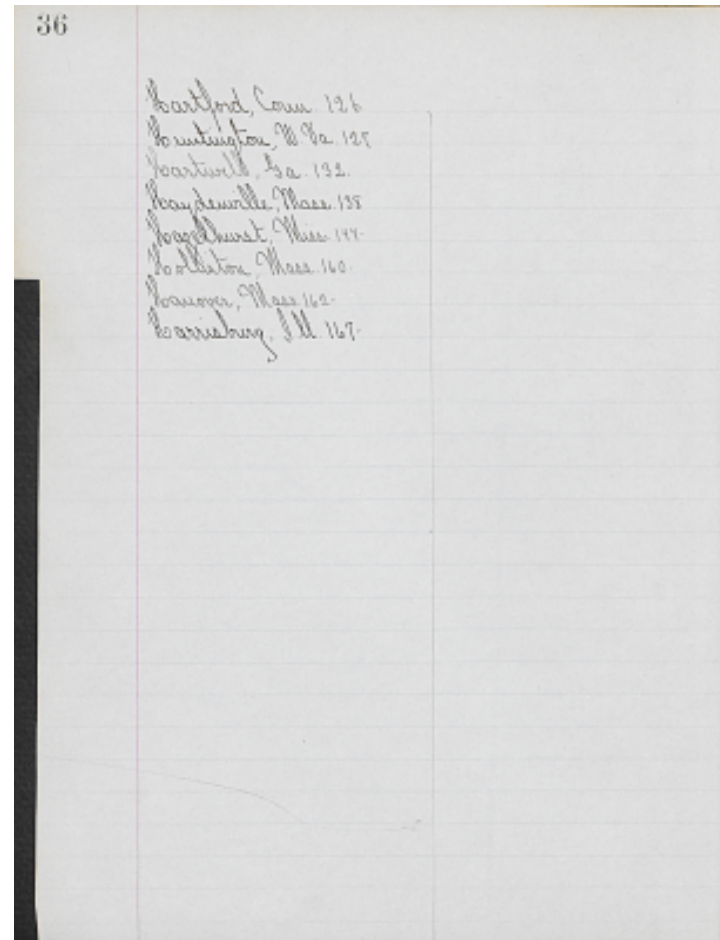 36
Hartford, Conn. 126
Huntington, W. Va. 127
Hartwell, Ga. 132.
Haydenville, Mass. 138
Hazelhurst, Miss. 144.
Holliston, Mass. 160.
Hanover, Mass. 162.
Harrisburg, Ill. 167.